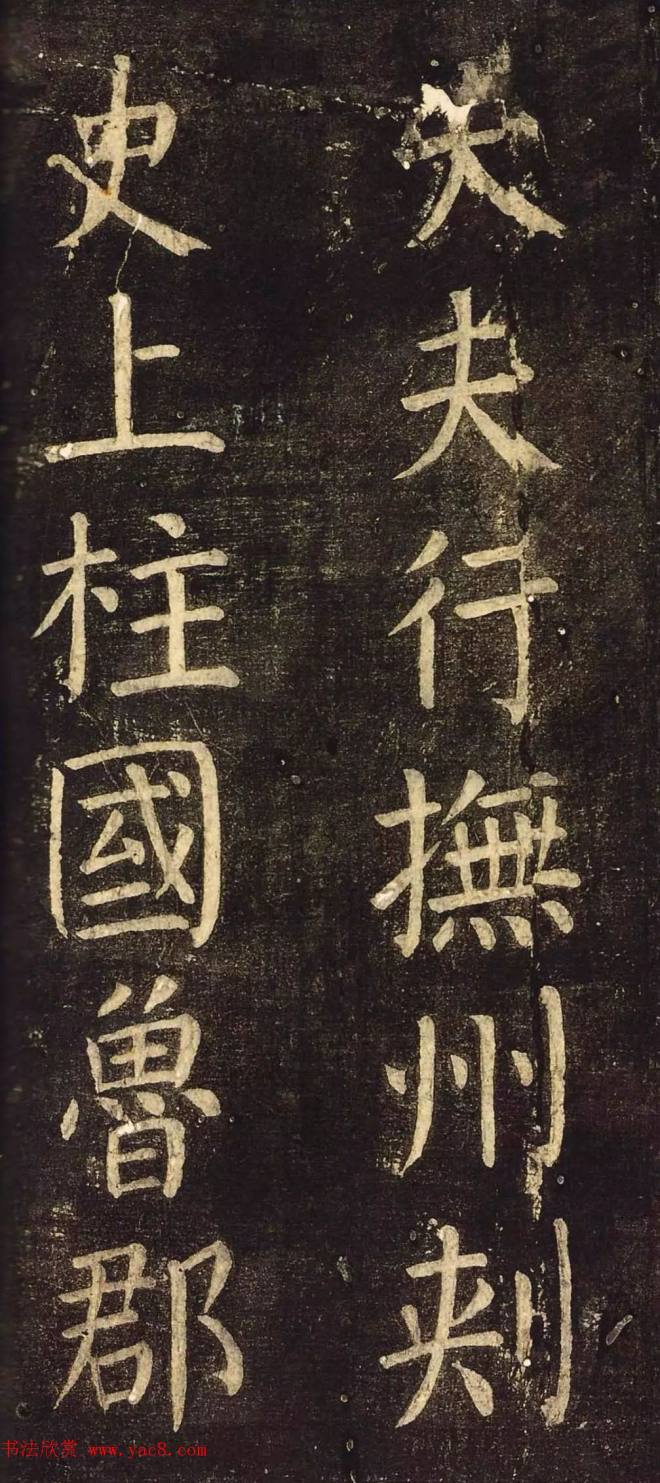 大夫行撫州刺
史上柱國魯郡
书法欣赏 www.yac8.com